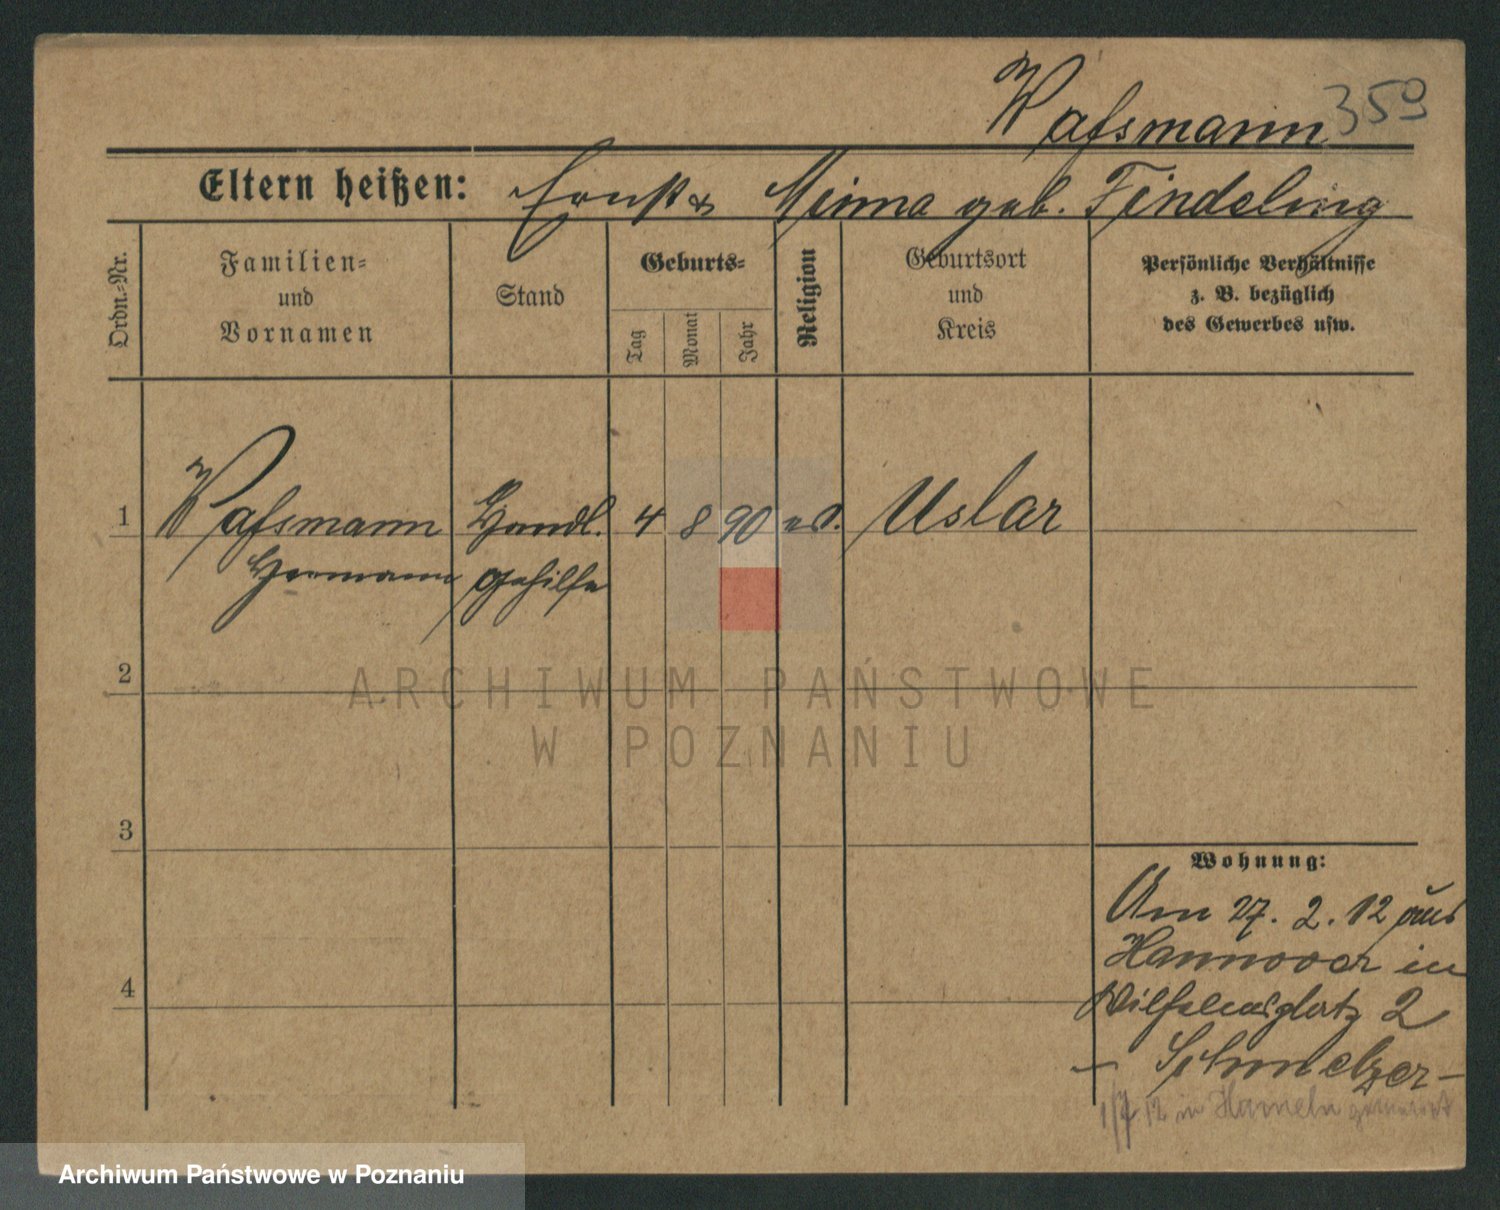 Waſsmann 359
Eltern heißen: Ernst & Minna geb. Findeling
Ordn.-Nr.
Familien-
und
Vornamen
Stand
Geburts-
Tag
Monat
Jahr
Religion
Geburtsort
und
Kreis
Persönliche Verhältnisse
z. B. bezüglich
des Gewerbes usw.
1 Waſsmann Handl. 4 8 90 ev. Uslar
Hermann gehilfe
2
3
4
Wohnung:
Am 27. 2. 12 aus
Hannover in
Wilhelmsplatz 2
– Schmelzer –
1/7 12 in Hameln gemeldet
ARCHIWUM PAŃSTWOWE
W POZNANIU
Archiwum Państwowe w Poznaniu